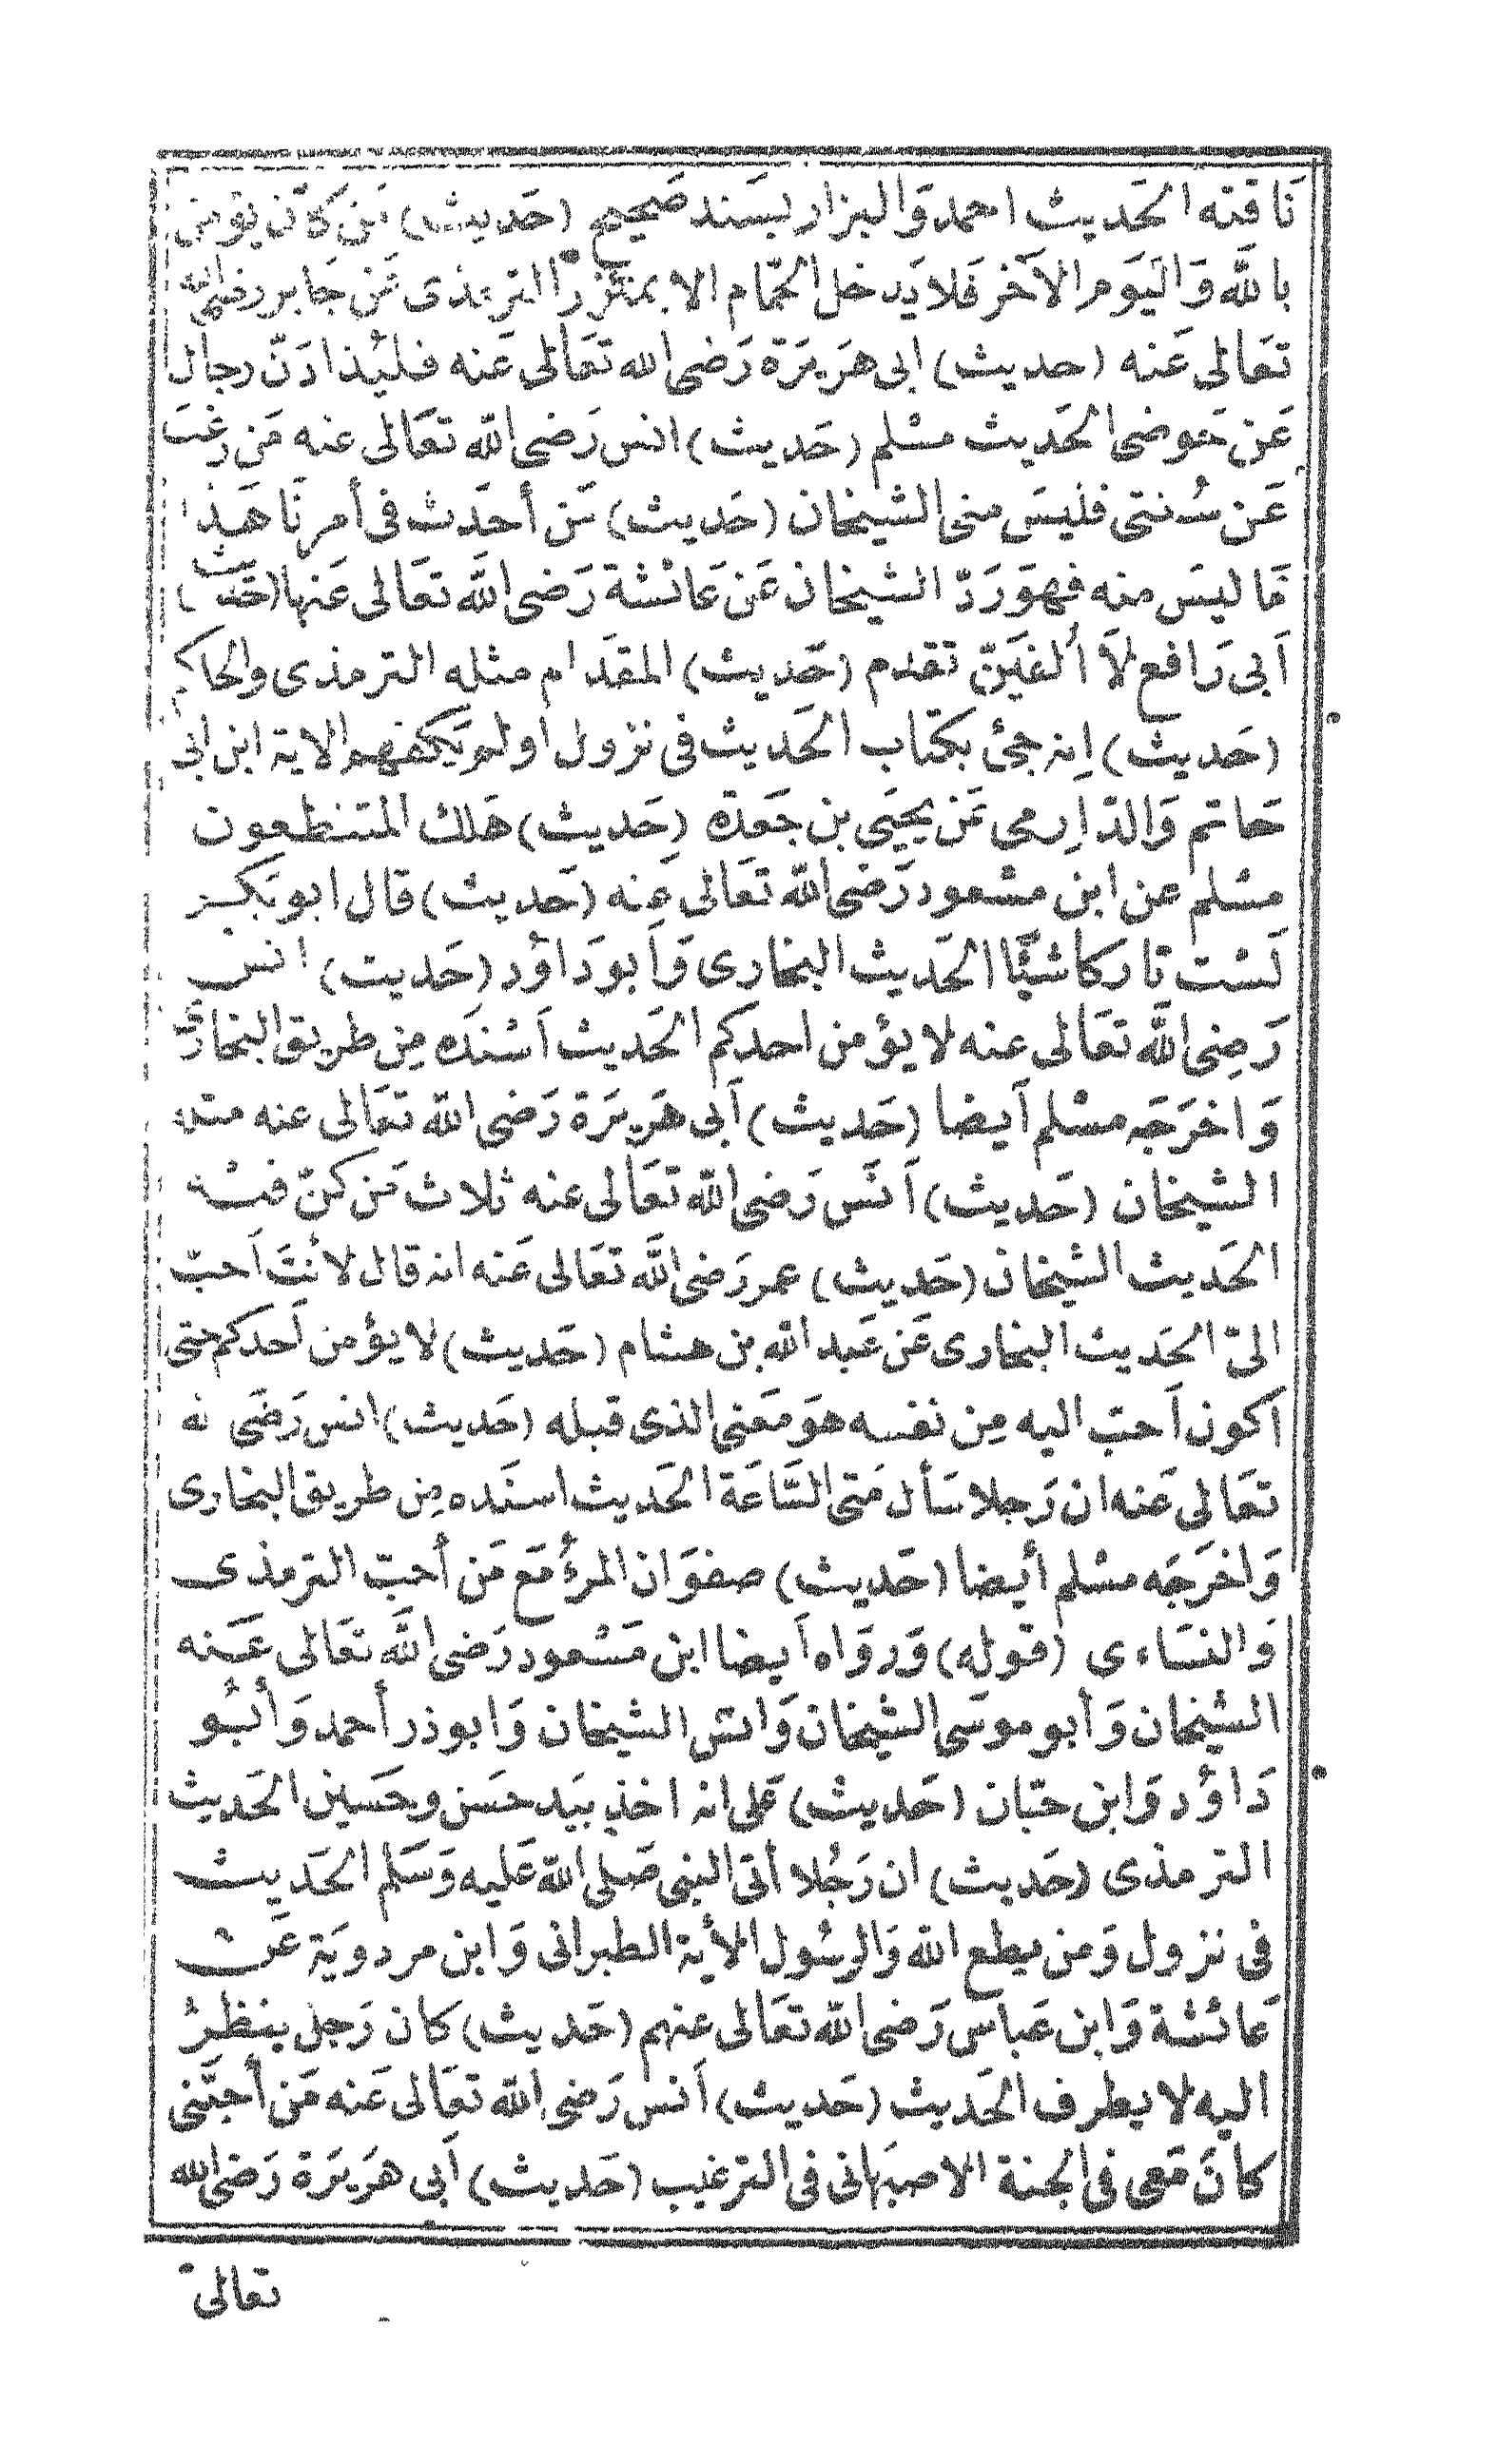 نَاقته الحَديث احمد وَالبزار بسَند صَحيح (حَديث) مَن كانَ يؤمن
بالله وَاليَوم الآخر فَلا يَدخل الحَمّام الا بمئزر الترمذى عَن جَابر رضى الله
تعَالى عَنه (حديث) ابى هرَيرَة رَضى الله تعَالى عَنه فليُذادَنّ رجال
عَن حَوضى الحَديث مسْلم (حَديث) انس رَضى الله تعَالى عنه مَن رغبَ
عَن سُنتى فليسَ منى الشيخان (حَديث) مَن أحدَث فى أمرنَا هَذا
مَا ليسَ منه فهوَ رَدّ الشيخان عَن عَائشة رَضى الله تعَالى عَنها (حَديث)
اَبى رَافع لاَ اُلفيَنّ تقدم (حَديث) المقدَام مثله الترمذى والحاكم
(حَديث) اِنه جئ بكتاب الحَديث فى نزول اولم يَكفهم الاية ابن ابى
حَاتم وَالدّارمى عَن يحيَى بن جَعدَه (حَديث) هَلك المتنطعون
مسْلم عن ابن مسْعود رَضى الله تعَالى عَنه (حَديث) قال ابو بَكر
لَسْت تاركا شيئًا الحَديث البخارى وَاَبو دَاوُد (حَديث) انس
رَضِى الله تعَالى عنه لا يؤمن احدكم الحَديث اَسْندَه مِن طريق البخارى
وَاخرَجَه مسْلم اَيضا (حَديث) اَبى هرَيرَة رَضى الله تعَالى عنه مثله
الشيخان (حَديث) اَنَس رَضى الله تعَالى عنه ثلاث مَن كنّ فيه
الحَديث الشيخان (حَديث) عمر رَضى الله تعَالى عَنه انه قال لانْتَ اَحبّ
الىّ الحَديث البخارى عَن عَبد الله بن هشام (حَديث) لا يؤمن اَحدكم حتى
اكون اَحبّ اليه مِن نفسه هوَ مَعنى الذى قبله (حَديث) انس رَضى الله
تعَالى عَنه ان رَجلا سَأل مَتى السَّاعَة الحَديث اسنَده مِن طريق البخارى
وَاخرَجَه مسْلم أيضا (حَديث) صفوَان المرءُ مَع مَن أحبّ الترمذى
وَالنسَاءى (قوله) وَروَاه اَيضا ابن مَسْعود رَضى الله تعَالى عَنه
الشيخان وَأبو موسَى الشيخان وَانس الشيخان وَابو ذر أحمد وَأبُو
دَاوُد وَابن حبّان (حَديث) عَلى انه اخذ بيَد حسَن وحسَين الحَديث
الترمذى (حَديث) ان رَجُلا أتى النبى صَلى الله عَليه وَسَلم الحَديث
فى نزول وَمن يطع الله وَالرسُول الأية الطبرانى وَابن مردويَة عَن
عَائشة وَابن عَباس رَضى الله تعَالى عنهم (حَديث) كان رَجل ينظرُ
اليه لا يطرف الحَديث (حَديث) اَنس رَضى الله تعَالى عَنه مَن أحبَّنى
كانَ مَعى فى الجنة الاصبهَانى فى الترغيب (حَديث) اَبى هرَيرَة رَضى الله
تعالى